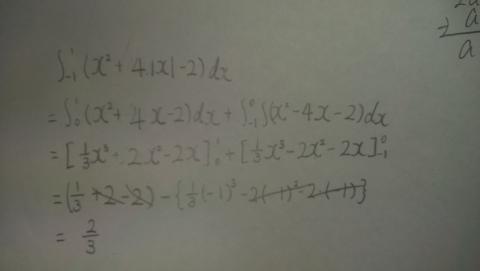 ∫₋₁¹(x²+4|x|-2)dx
=∫₀¹(x²+4x-2)dx+∫₋₁⁰(x²-4x-2)dx
=[⅓x³+2x²-2x]₀¹+[⅓x³-2x²-2x]₋₁⁰
=(⅓+2-2)-{⅓(-1)³-2(-1)²-2(-1)}
=⅔
a